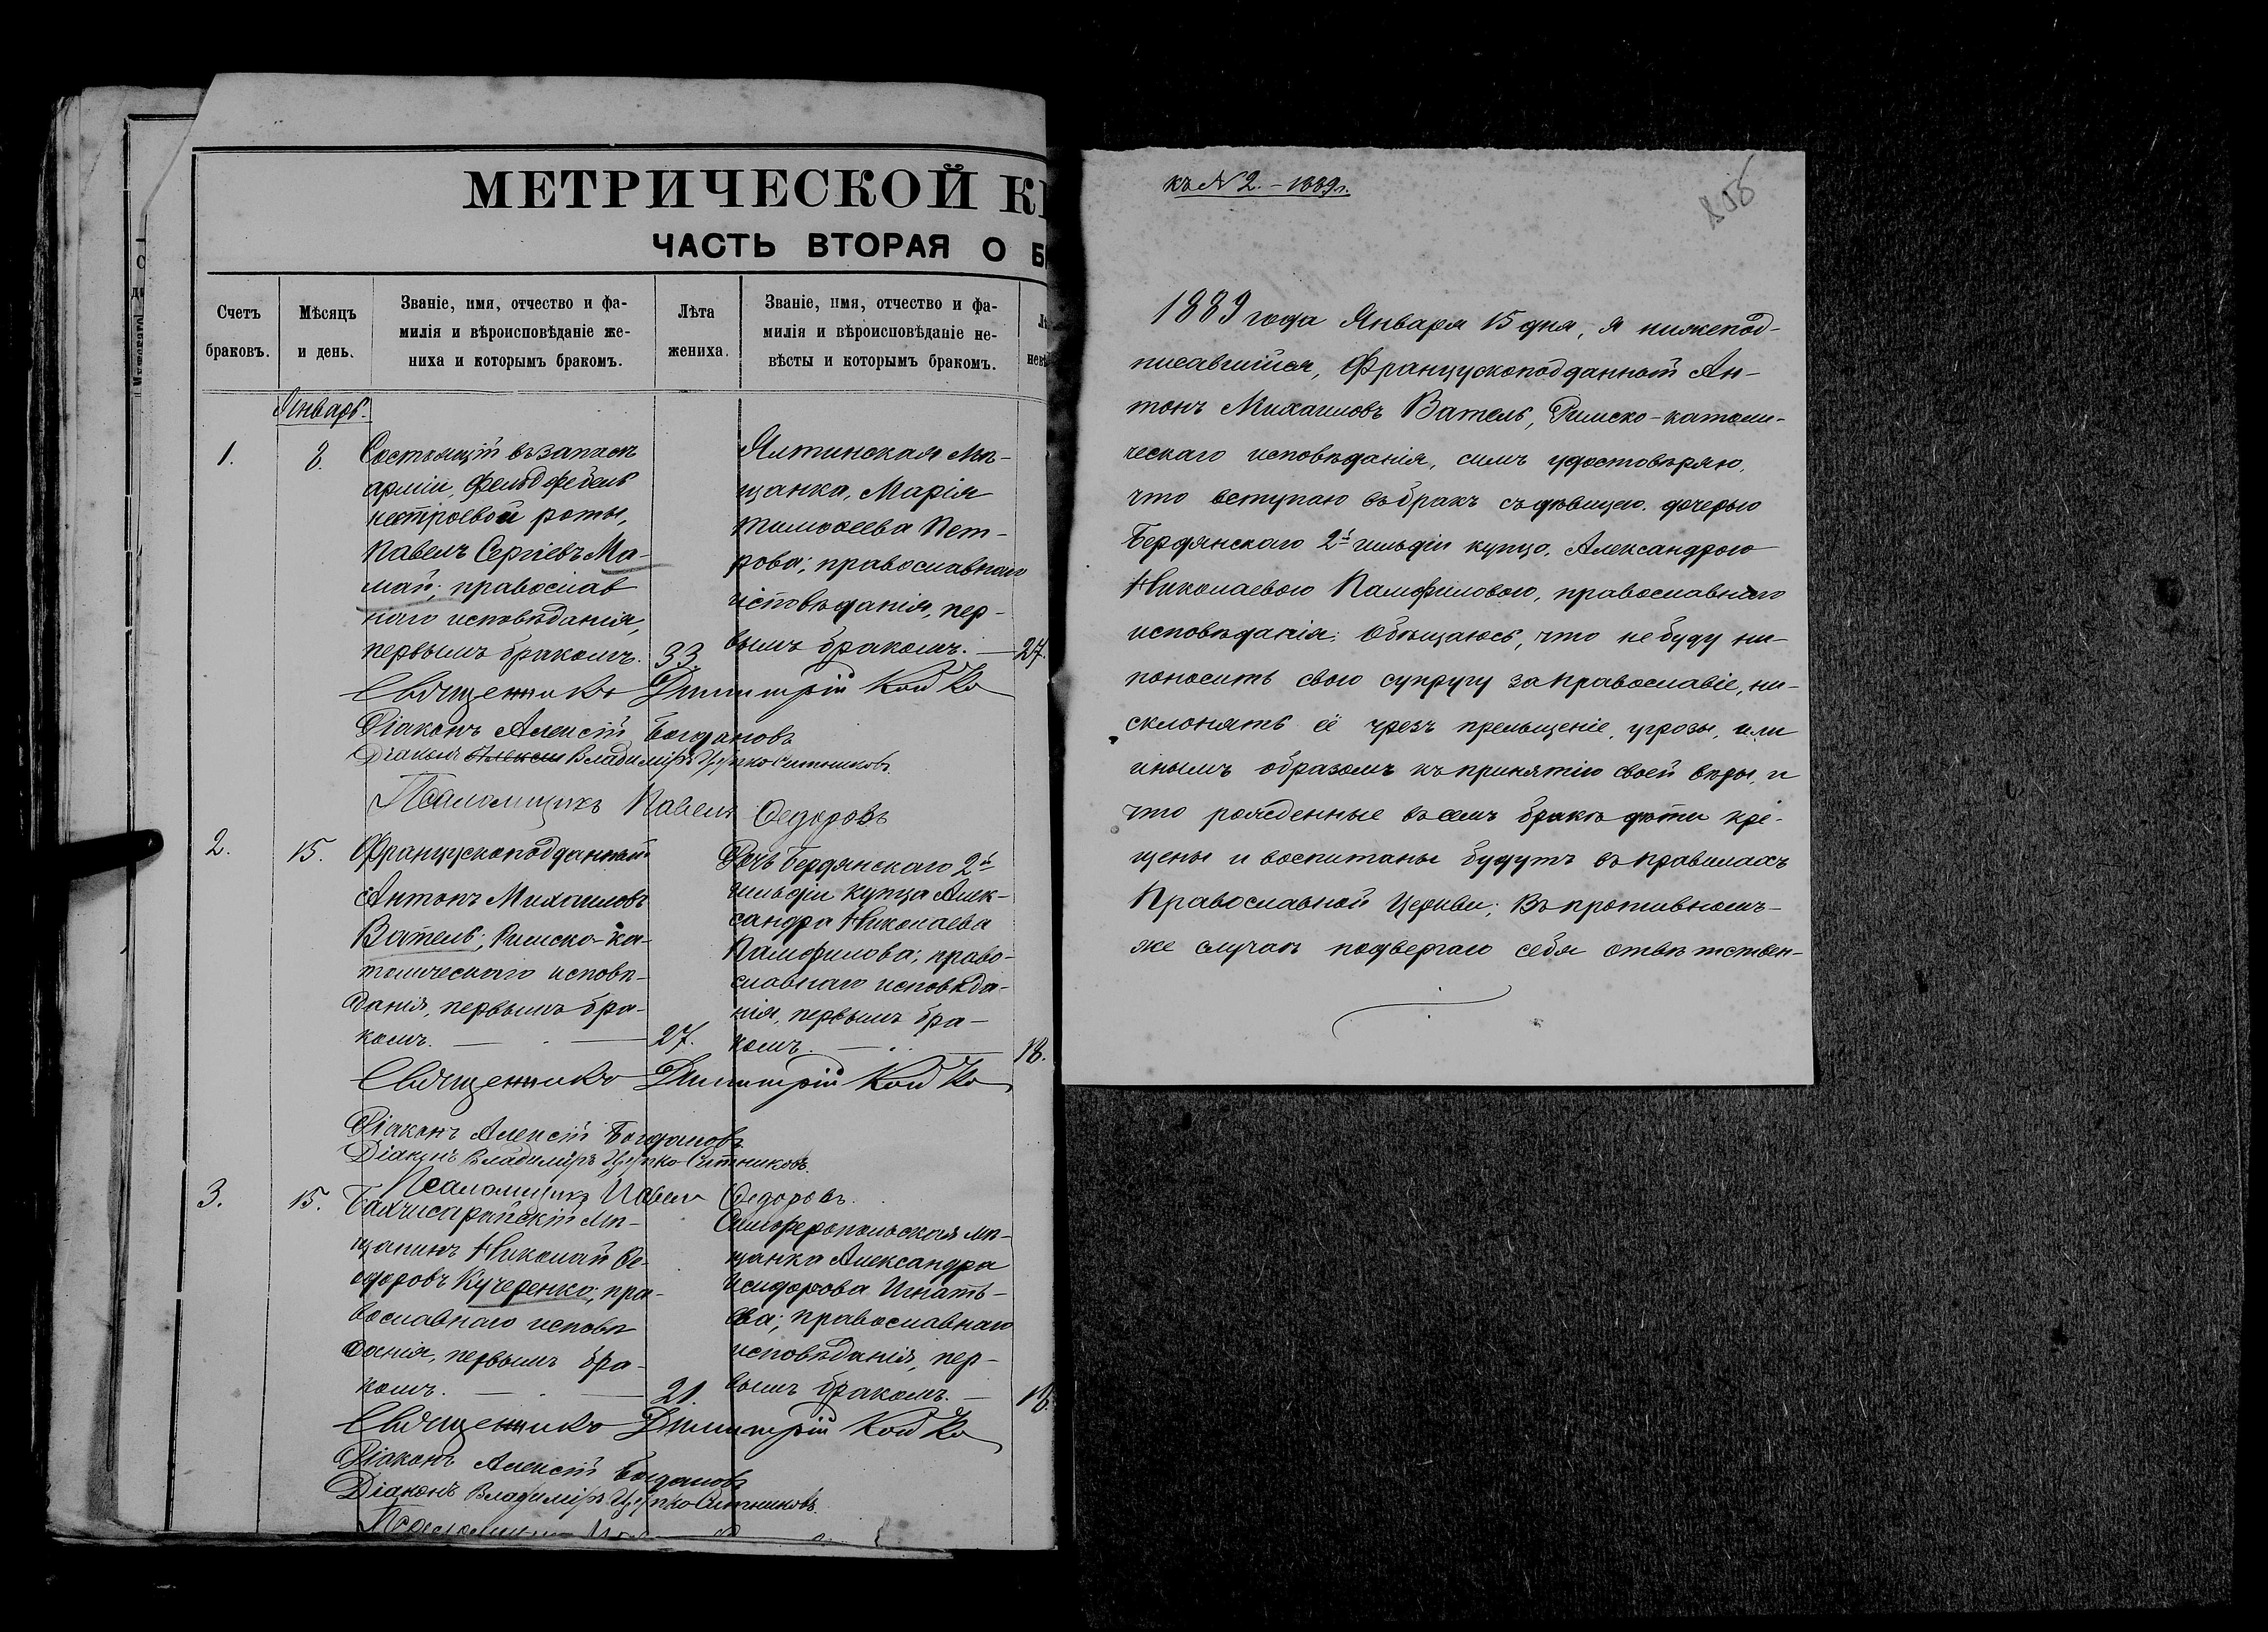 МЕТРИЧЕСКОЙ К
ЧАСТЬ ВТОРАЯ О Б
Счетъ
браковъ.
Мѣсяцъ
и день.
Званіе, имя, отчество и фа-
милія и вѣроисповѣданіе же-
ниха и которымъ бракомъ.
Лѣта
жениха.
Званіе, имя, отчество и фа-
милія и вѣроисповѣданіе не-
вѣсты и которымъ бракомъ.
Январь.
1.
8.
Состоящій въ запасѣ
арміи, фельдфебель
нестроевой роты,
Павелъ Сергіевъ Ма-
май; православ
наго исповѣданія,
первымъ бракомъ.
33
Ялтинская мѣ-
щанка, Марія
Тимоѳеева Пет-
рова; православнаго
исповѣданія, пер-
вымъ бракомъ. —
27.
Священникъ Димитрій Койко
Діаконъ Алексій Богдановъ
Діаконъ Владиміръ Цупко-Ситниковъ.
Псаломщикъ Павелъ Ѳедоровъ
2.
15.
Французскоподданный
Антонъ Михаиловъ
Ватель; Римско-ка-
толическаго исповѣ-
данія, первымъ бра-
комъ. —
27.
Дочь Бердянскаго 2й
гильдіи купца Алек-
сандра Николаева
Памфилова; право-
славнаго исповѣда-
нія, первымъ бра-
комъ. —
18.
Священникъ Димитрій Койко
Діаконъ Алексій Богдановъ
Діаконъ Владиміръ Цупко-Ситниковъ.
Псаломщикъ Павелъ Ѳедоровъ.
3.
15.
Бахчисарайскій мѣ-
щанинъ Николай Ѳе-
одоровъ Кучеренко; пра-
вославнаго исповѣ
данія, первымъ бра-
комъ. —
21.
Симферопольская мѣ-
щанка Александра
Исидорова Игнать-
ева; православнаго
исповѣданія, пер-
вымъ бракомъ. —
18.
Священникъ Димитрій Койко
Діаконъ Алексій Богдановъ
Діаконъ Владиміръ Цупко-Ситниковъ.
къ № 2. – 1889 г.
1889 года Января 15 дня, я нижепод-
писавшійся, Французскоподданный Ан-
тонъ Михаиловъ Ватель, Римско-католи-
ческаго исповѣданія, симъ удостовѣряю,
что вступаю въ бракъ съ дѣвицею, дочерью
Бердянскаго 2й гильдіи купца, Александрою
Николаевою Памфиловою, православнаго
исповѣданія; Обѣщаюсь, что не буду ни-
поносить свою супругу за православіе, ни-
склонять её чрезъ прельщеніе, угрозы, или
инымъ образомъ къ принятію своей вѣры, и
что рожденные въ семъ бракѣ дѣти кре-
щены и воспитаны будутъ въ правилахъ
Православной Церкви; Въ противномъ-
же случаѣ подвергаю себя отвѣтствен-